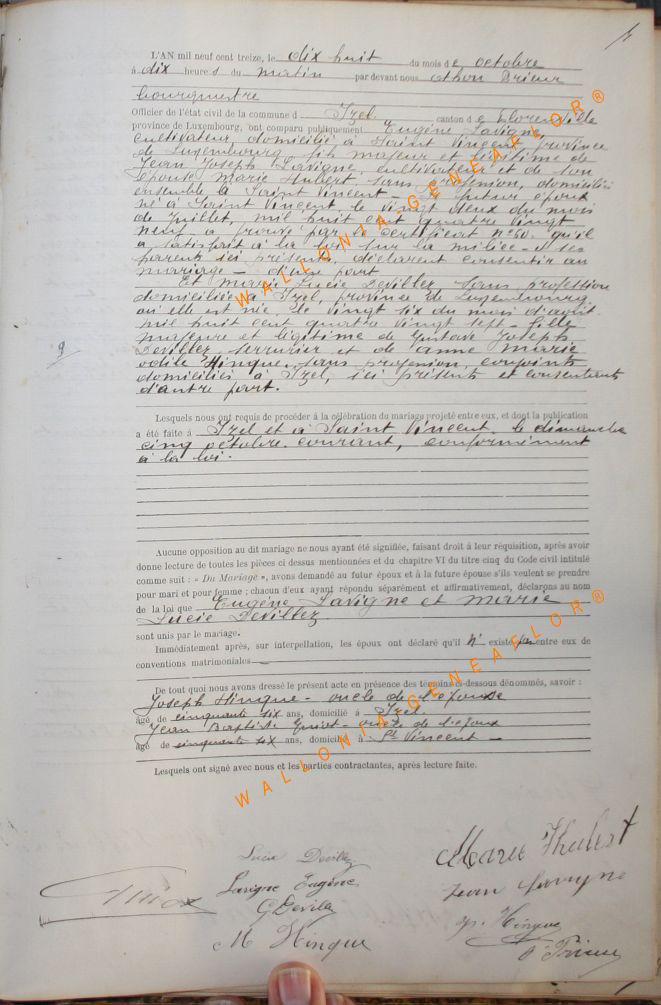 L'AN mil neuf cent treize, le dix huit du mois de octobre
à dix heures du matin par devant nous Athon Brieur
bourgmestre
Officier de l'état civil de la commune d Izel canton de Florenville
province de Luxembourg, ont comparu publiquement Eugène Lavigne,
cultivateur, domicilié à Saint Vincent province
de Luxembourg, fils majeur et légitime de
Jean Joseph Lavigne, cultivateur et de son
épouse Marie Hubert sans profession, domiciliés
ensemble à Saint Vincent - le futur époux
né à Saint Vincent le vingt deux du mois
de Juillet, mil huit cent quatre vingt
neuf a prouvé par le certificat n° 60. qu'il
a satisfait à la loi sur la milice - et ses
parents ici présents, déclarent consentir au
mariage - d'une part
Et Marie Lucie Devillez, sans profession
domiciliée à Izel, province de Luxembourg
où elle est née, le vingt six du mois d'août
mil huit cent quatre vingt sept - fille
majeure et légitime de Gustave Joseph
Devillez serrurier et de Anne Marie
Odile Hinque, sans profession, conjoints
domiciliés à Izel, ici présents et consentants
d'autre part.
9
Lesquels nous ont requis de procéder à la célébration du mariage projeté entre eux, et dont la publication
a été faite à Izel et à Saint Vincent, le dimanche
cinq octobre courant, conformément
à la loi.
Aucune opposition au dit mariage ne nous ayant été signifiée, faisant droit à leur réquisition, après avoir
donné lecture de toutes les pièces ci dessus mentionnées et du chapitre VI du titre cinq du Code civil intitulé
comme suit : « Du Mariage », avons demandé au futur époux et à la future épouse s'ils veulent se prendre
pour mari et pour femme ; chacun d'eux ayant répondu séparément et affirmativement, déclarons au nom
de la loi que Eugène Lavigne et Marie
Lucie Devillez
sont unis par le mariage.
Immédiatement après, sur interpellation, les époux ont déclaré qu'il n' existe pas entre eux de
conventions matrimoniales -
De tout quoi nous avons dressé le présent acte en présence des témoins ci-dessous dénommés, savoir :
Joseph Hinque - oncle de l'épouse
âgé de cinquante six ans, domicilié à Izel
Jean Baptiste - oncle de l'époux
âgé de cinquante six ans, domicilié à St Vincent -
Lesquels ont signé avec nous et les parties contractantes, après lecture faite.
Lucie Devillez
Marie Hubert
Lavigne Eugène
Jean Lavigne
G Devillez
Jh. Hinque
M Hinque
A Brieur
WALLONIA-GENEAFLOR®
WALLONIA-GENEAFLOR®